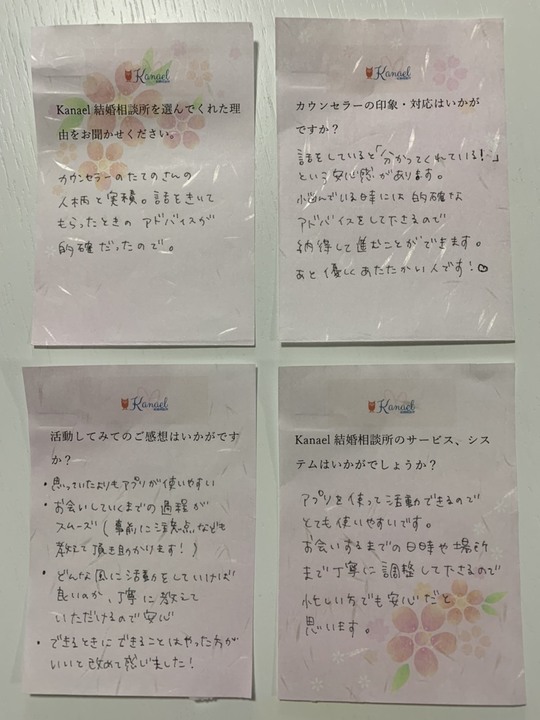 Kanael
Kanael 結婚相談所を選んでくれた理
由をお聞かせください。
カウンセラーのたてのさんの
人柄と実積。話をきいて
もらったときの アドバイスが
的確だったので。
Kanael
カウンセラーの印象・対応はいかが
ですか?
話をしていると「分かってくれている!」
という安心感があります。
悩んでいる時には 的確な
アドバイスをして下さるので
納得して進むことができます。
あと 優しくあたたかい人です!♡
Kanael
活動してみてのご感想はいかがです
か?
・思っていたよりもアプリが使いやすい
・お会いしていくまでの過程が
スムーズ(事前に注意点なども
教えて頂き助かります!)
・どんな風に活動をしていけば
良いのか、丁寧に教えて
いただけるので安心
・できるときにできることはやった方が
いいと改めて感じました!
Kanael
Kanael 結婚相談所のサービス、シス
テムはいかがでしょうか?
アプリを使って活動できるので
とても使いやすいです。
お会いするまでの日時や場所
まで丁寧に調整して下さるので
忙しい方でも安心だと
思います。